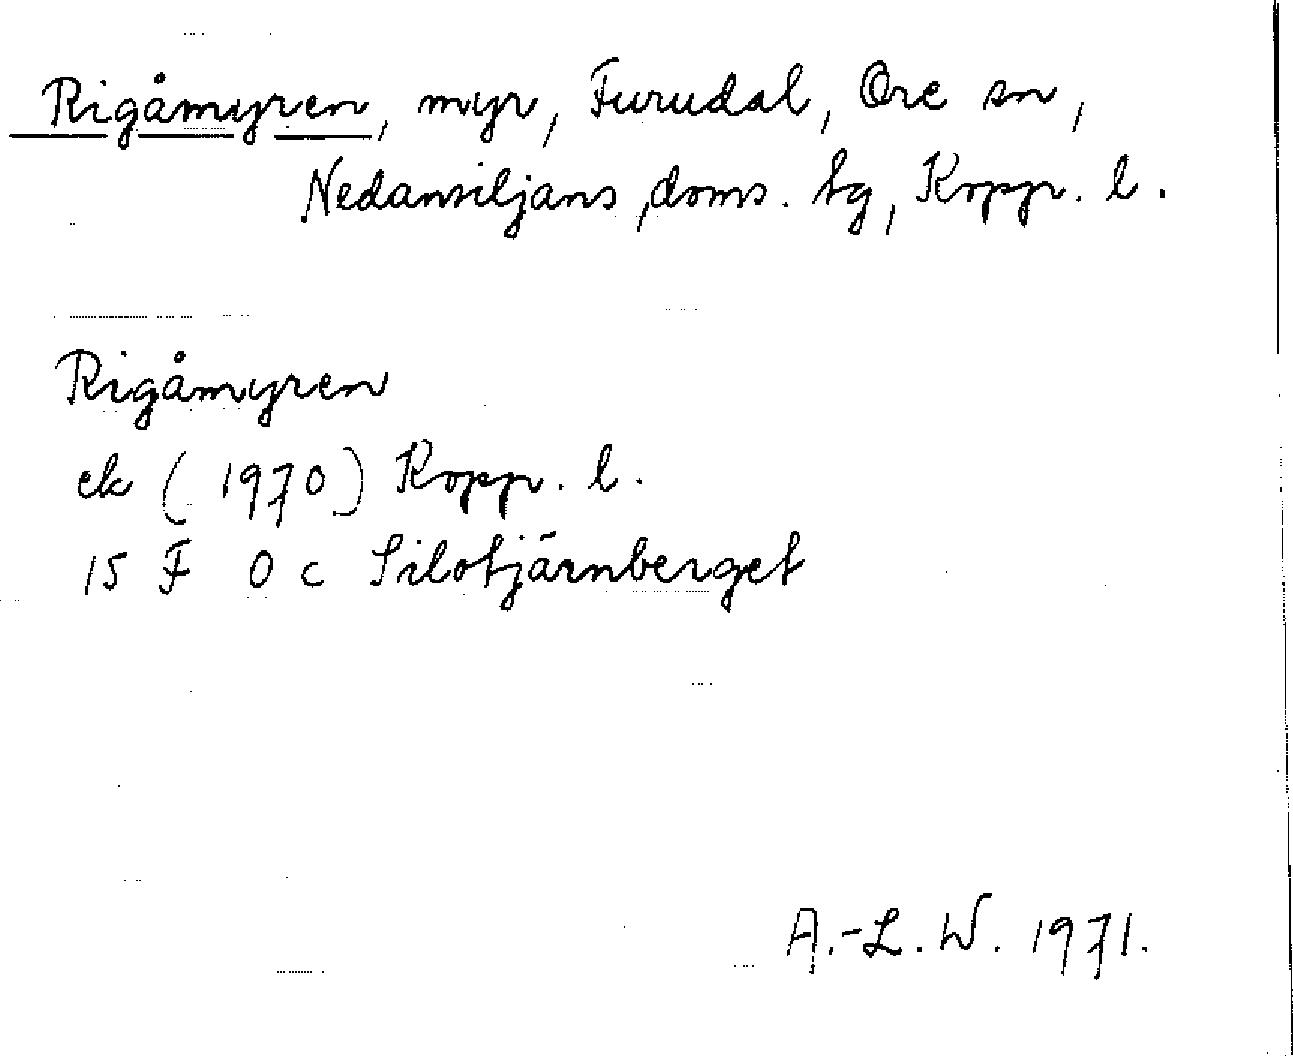 Rigåmyren, myr, Furudal, Ore sn,
Nedansiljans doms. tg, Kopp. l.
Rigåmyren
ek (1970) Kopp. l.
15 F 0 c Silotjärnberget
A.-L. W. 1971.